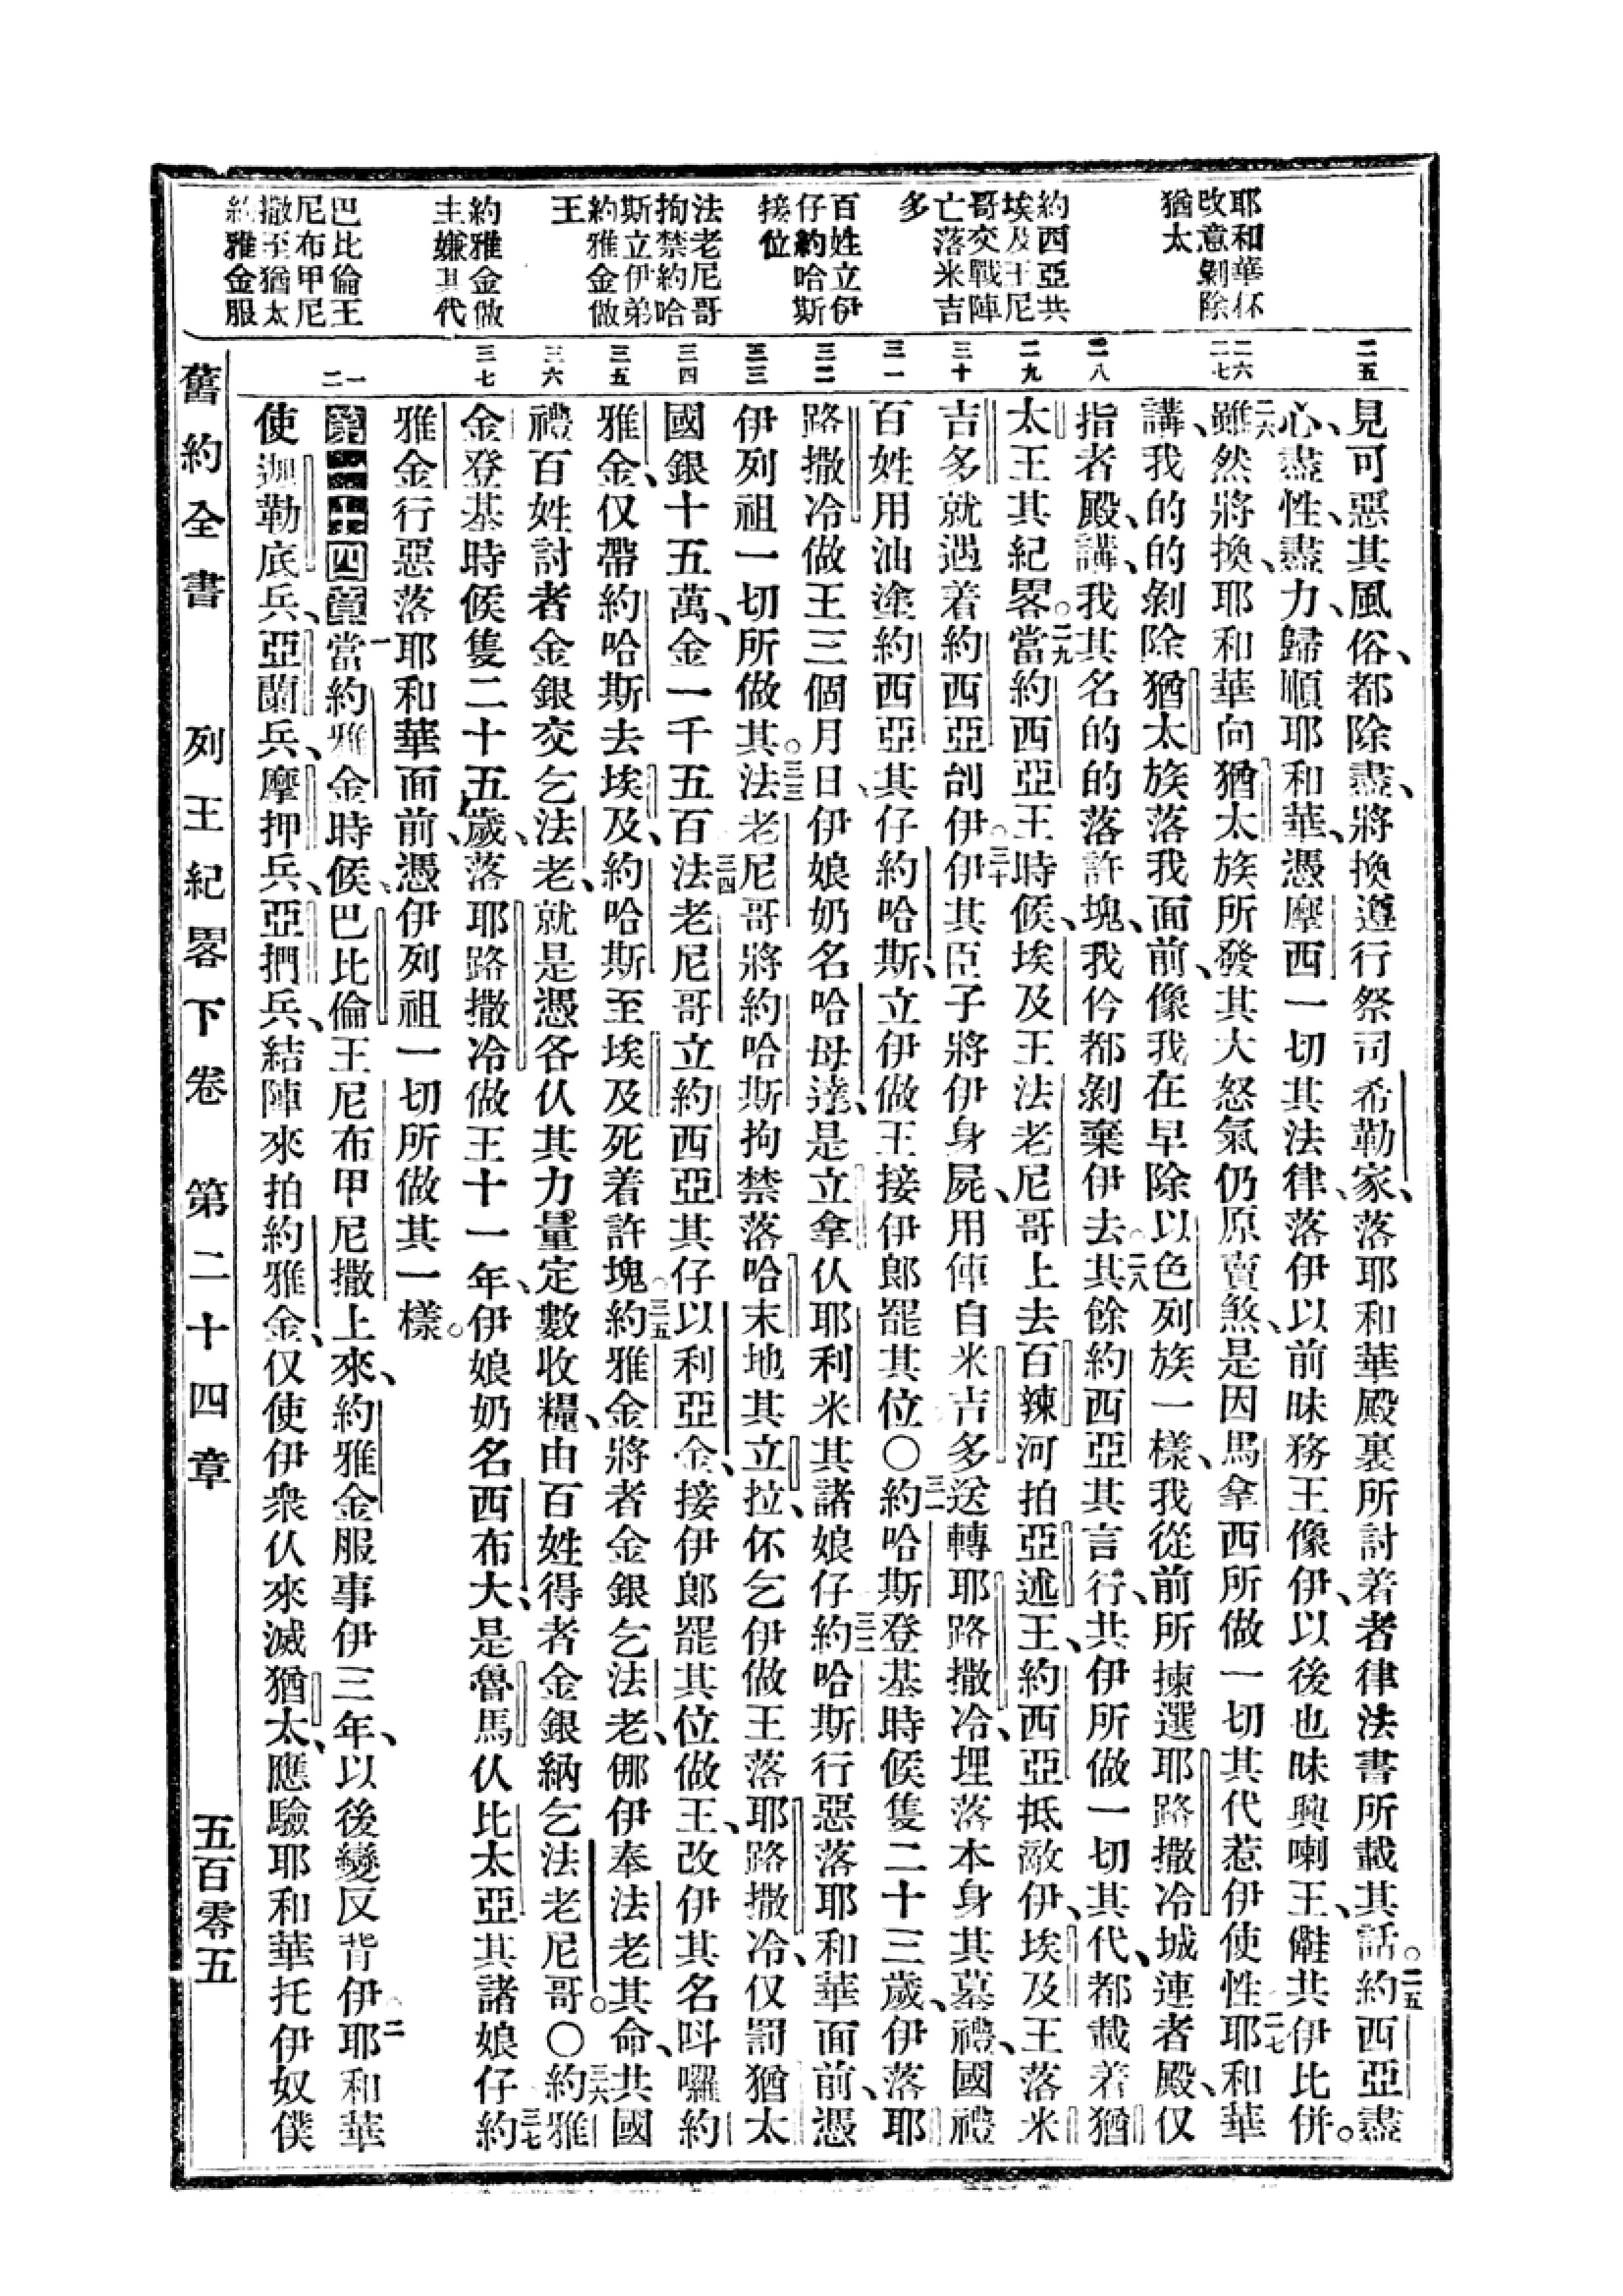 耶和華伓
改意剝除
猶太
約西亞共
埃及王尼
哥交戰陣
亡落米吉
多
百姓立伊
仔約哈斯
接位
法老尼哥
拘禁約哈
斯立伊弟
約雅金做
王
約雅金做
主嫌其代
巴比倫王
尼布甲尼
撒至猶太
約雅金服
二五
二六
二七
二八
二九
三十
三一
三二
三三
三四
三五
三六
三七
一
二
見可惡其風俗、都除盡、將換遵行祭司希勒家、落耶和華殿裏所討着者律法書所載其話。二五約西亞盡
心、盡性、盡力、歸順耶和華、憑摩西一切其法律、落伊以前昧務王像伊、以後也昧興喇王、僅共伊比併。
二六雖然將換、耶和華向猶太族所發其大怒氣仍原賣煞、是因馬拿西所做一切其代惹伊使性、二七耶和華
講、我的的剝除猶太族落我面前、像我在早除以色列族一樣、我從前所揀選耶路撒冷城連者殿、仅
指者殿、講、我其名的的落許塊、我仱都剝棄伊去。二八其餘約西亞其言行、共伊所做一切其代、都載着猶
太王其紀畧。二九當約西亞王時候、埃及王法老尼哥上去百辣河拍亞述王、約西亞抵敵伊、埃及王落米
吉多就遇着約西亞刣伊。三十伊其臣子將伊身屍、用俥自米吉多送轉耶路撒冷、埋落本身其墓、禮國禮
百姓用油塗約西亞其仔約哈斯、立伊做王接伊郎罷其位〇三一約哈斯登基時候隻二十三歲、伊落耶
路撒冷做王三個月日、伊娘奶名哈母達、是立拿仈耶利米其諸娘仔三二約哈斯行惡落耶和華面前、憑
伊列祖一切所做其。三三法老尼哥將約哈斯拘禁落哈末地其立拉、伓乞伊做王落耶路撒冷、仅罰猶太
國銀十五萬、金一千五百三四法老尼哥立約西亞其仔以利亞金、接伊郎罷其位做王、改伊其名呌囉約
雅金、仅帶約哈斯去埃及、約哈斯至埃及死着許塊。三五約雅金將者金銀乞法老、挪伊奉法老其命、共國
禮百姓討者金銀交乞法老、就是憑各仈其力量定數收糧、由百姓得者金銀納乞法老尼哥。〇三六約雅
金登基時候隻二十五歲、落耶路撒冷做王十一年、伊娘奶名西布大、是魯馬仈比太亞其諸娘仔三七約
雅金行惡落耶和華面前、憑伊列祖一切所做其一樣。
第二十四章一當約雅金時候、巴比倫王尼布甲尼撒上來、約雅金服事伊三年、以後變反背伊。二耶和華
使迦勒底兵、亞蘭兵、摩押兵、亞捫兵、結陣來拍約雅金、仅使伊衆仈來滅猶太、應驗耶和華托伊奴僕
舊約全書　列王紀畧下卷　第二十四章　五百零五